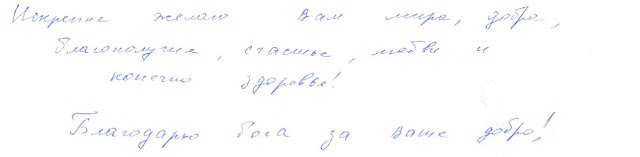 Искренне желаю Вам мира, добра,
благополучия, счастье, любви и
конечно здоровья!
Благодарю бога за ваше добро!